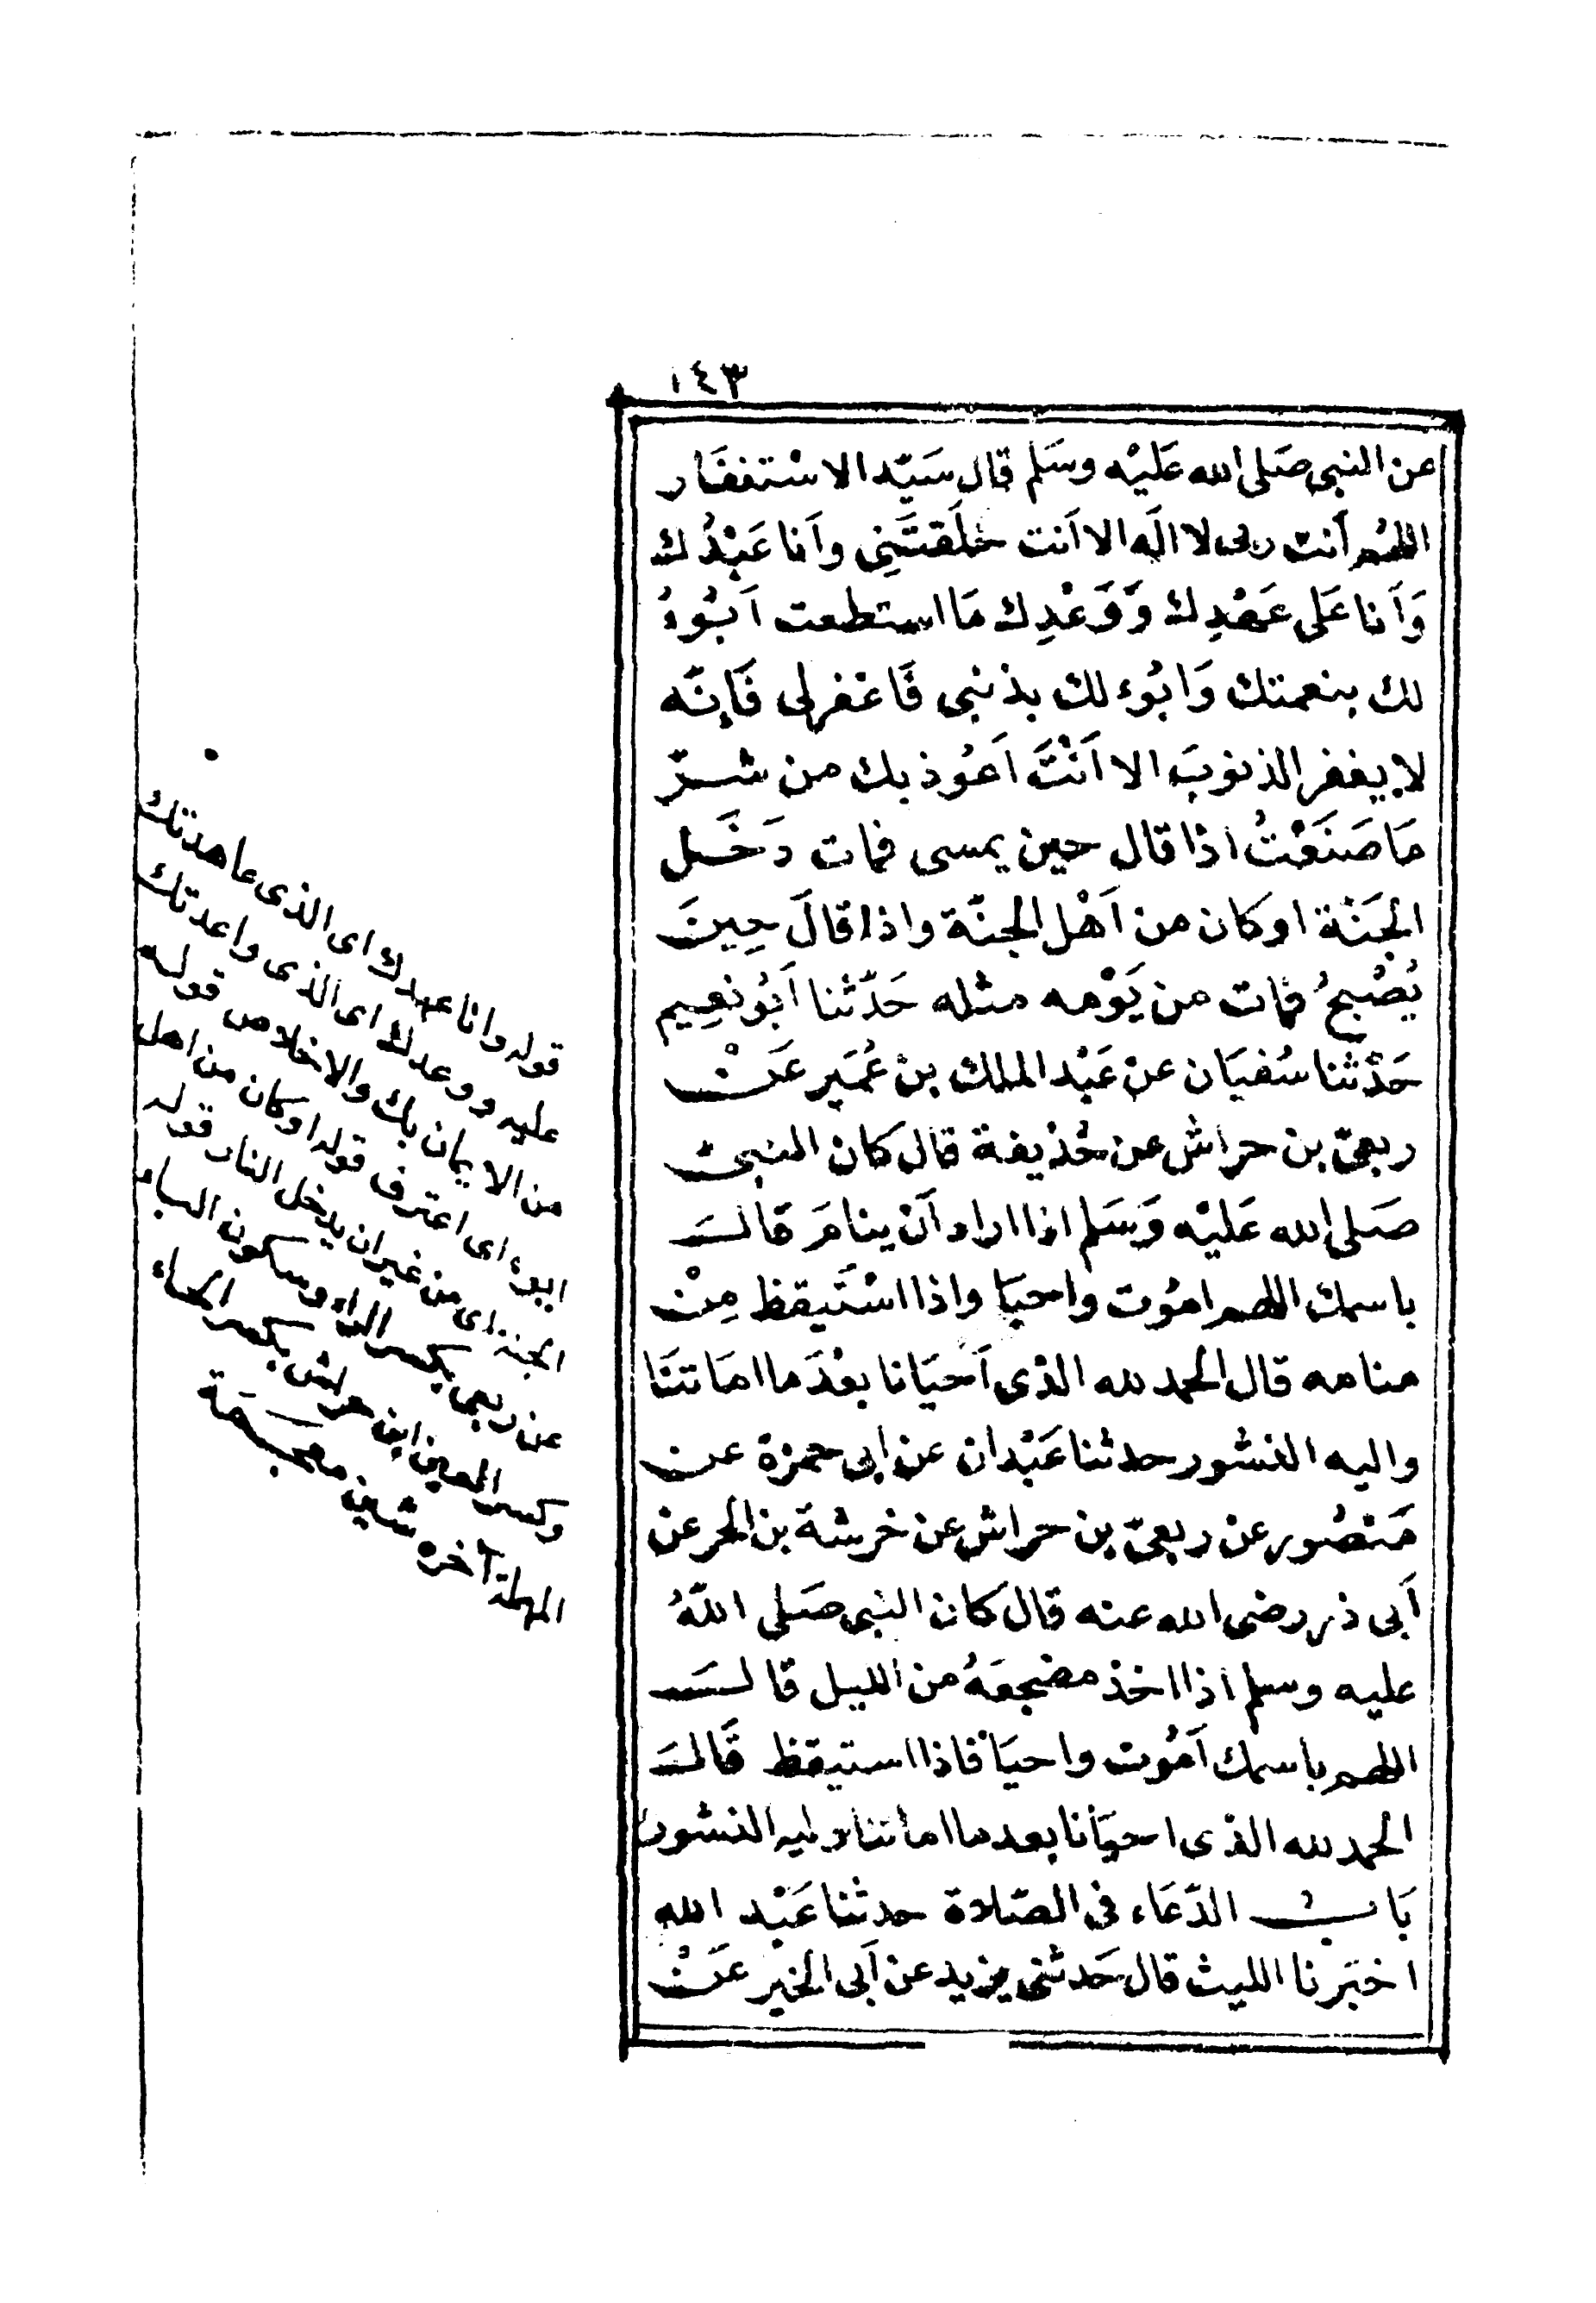 ١٤٣
عن النبى صَلى الله عَليْه وسَلم قال سَيّد الاسْتغفَار
اللهُم أنت ربى لا الَه الا اَنت خلَقتَنِى واَنا عَبْدُك
وَاَنا عَلى عَهْدِك وَوَعْدِك مَا استطعت اَبُوءُ
لك بنعمتك وَابُوء لك بذنبى فَاغفرلى فَاِنّه
لا يغفر الذنوبَ الا اَنْتَ اَعُوذ بك من شرّ
مَا صَنَعْتُ اذا قال حين يمسى فمات دَخَل
الجَنّة اوكان من اَهْل الجنّة واذا قالَ حِينَ
يُصْبحُ فمات من يَوْمه مثله حَدّثنا اَبُو نعِيم
حَدّثنا سُفيَان عنْ عَبْد الملك بن عُمَير عَنْ
ربعىّ بن حراش عن حُذيفة قال كان النبى
صَلى الله عَليْه وَسَلم اذا اراد اَن ينامَ قالَ
باسمك اللهم امُوت واحيَا واذا اسْتَيقظ مِنْ
منامه قال الحمد لله الذى اَحيَانا بعْدَ ما امَاتنَا
واليه النشور حدثنا عَبْدان عن ابى حمزة عن
مَنصُور عن ربعىّ بن حراش عن خرشة بن الحر عن
اَبى ذر رضى الله عنه قال كان النبى صَلى اللهُ
عليه وسلم اذا اخذ مضجعَهُ من الليل قالَ
اللهم باسمك اَمُوت واحيَا فاذا استيقظ قَالَ
الحمد لله الذى احيَانا بعد ما اماتنا واليه النشور
بَاب الدّعَاء فى الصّلاة حدثنا عَبْد الله
اخبَرنا الليث قال حَدثنى يزيد عن اَبى الخير عَنْ
قوله وانا عهدك اى الذى عاهدتك
عليه ووعدك اى الذى واعدتك
من الايمان بك والاخلاص قوله
ابوء اى اعترف قوله اوكان من اهل
الجنة اى من غير ان يدخل النار قوله
عن ربعى بكسر الراء وسكون الباء
وكسر العين ابن حراش بكسر الحاء
المهملة آخره شين معجمَة